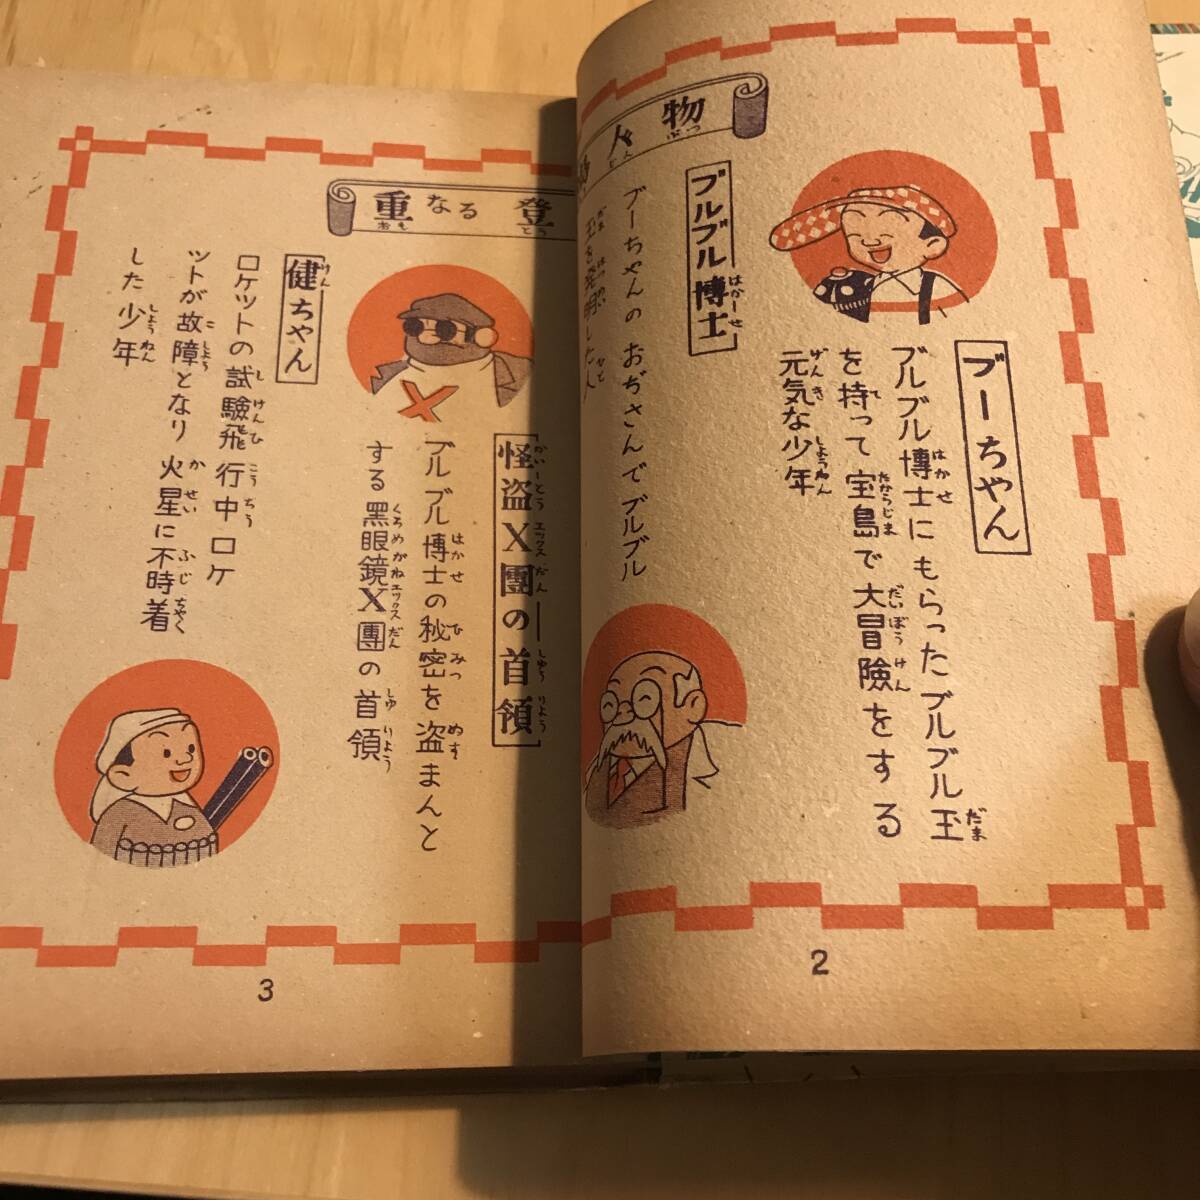 重なる登
人物
ブーちやん
ブルブル博士にもらったブルブル玉
を持って宝島で大冒険をする
元気な少年
ブルブル博士
ブーちやんの おぢさんでブルブル
玉を発明した人
2
怪盗X團の首領
ブルブル博士の秘密を盗まんと
する黑眼鏡X團の首領
健ちやん
ロケットの試驗飛行中ロケ
ットが故障となり 火星に不時着
した少年
3